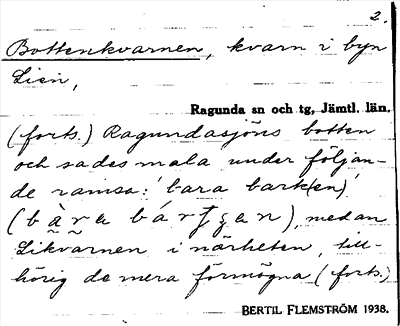 2.
Bottenkvarnen, kvarn i byn
Lien,
Ragunda sn och tg, Jämtl. län.
(forts.) Ragundasjöns botten
och sades mala under följan-
de ramsa: 'bara bark(en)'
medan
Likvarnen i närheten, till-
hörig de mera förmögna (forts.)
BERTIL FLEMSTRÖM 1938.